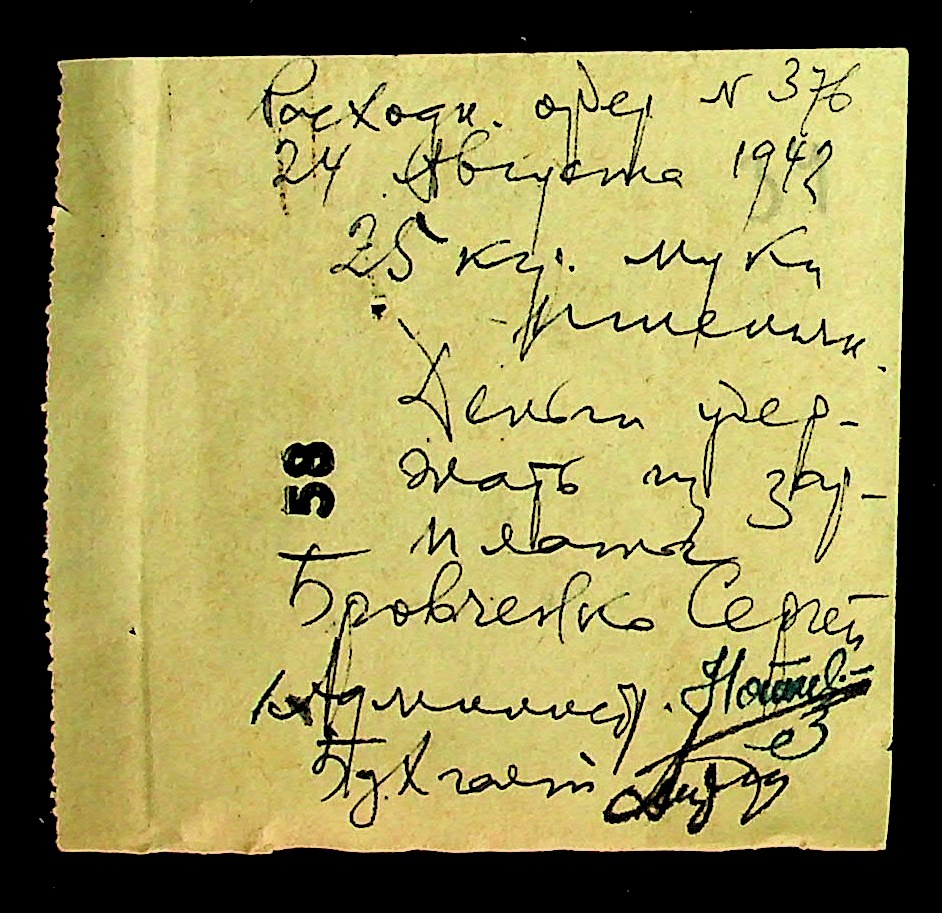 Расходн. ордер N 376
24 Августа 1942
25 кгр. муки
пшеничн.
Деньги удер-
жать из зар-
платы
58
Бровченко Сергей
Администр.
Бухгалт